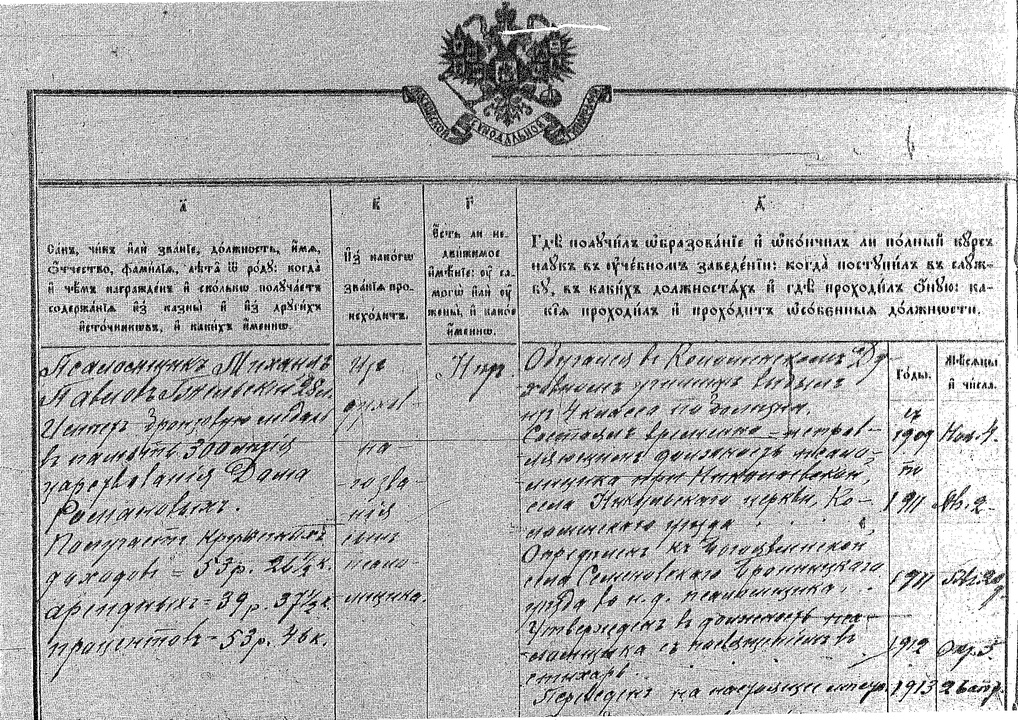 МОСКОВСКОЙ СѴНОДАЛЬНОЙ ТИПОГРАФІИ
А҃
В҃
Г҃
Д҃
Са́нъ, чи́нъ и҆лѝ зва́нїе, до́лжность, и҆́мѧ,
ѻ҆́тчество, фами́лїѧ, лѣ́та ѿ ро́дꙋ: когда̀
и҆ чѣ́мъ награжде́нъ и҆ ско́лькѡ получа́етъ
содержа́нїѧ и҆з̾ казны̀ и҆ и҆з̾ дрꙋги́хъ
и҆сто́чникѡвъ, и҆ каки́хъ и҆́меннѡ.
И҆з̾ како́гѡ
зва́нїѧ про-
исхо́дитъ.
Е҆́сть ли не-
дви́жимое
и҆мѣ́нїе: ᲂу҆ са-
могѡ̀ и҆лѝ ᲂу҆
жены̀, и҆ како́е
и҆́меннѡ.
Гдѣ̀ получи́лъ ѡ҆бразова́нїе и҆ ѡ҆ко́нчилъ ли по́лный кꙋ́рсъ
наꙋ́къ въ ᲂу҆че́бномъ заведе́нїи: когда̀ постꙋпи́лъ въ слꙋ́ж-
бꙋ, въ каки́хъ должностѧ́хъ и҆ гдѣ̀ проходи́лъ ѻ҆́нꙋю: ка-
кі́ѧ проходи́лъ и҆ прохо́дитъ ѡ҆со́бенныѧ до́лжности.
Го́ды.
Мѣ́сѧцы
и҆ чи́сла.
Псаломщикъ Михаилъ
Павловъ 28 л.
Имѣетъ бронзовую медаль
въ память 300-лѣтія
царствованія Дома
Романовыхъ.
Получаетъ кружечныхъ
доходовъ = 53 р. 26½ к.
арендныхъ = 39 р. 37½ к.
процентовъ - 53 р. 46 к.
Изъ
духов-
на-
го зва-
нія
сынъ
псало-
мщика.
Обучался въ Коломенскомъ Ду-
ховномъ училищѣ выбылъ
изъ 4 класса по болѣзни.
Состоялъ временно-исправ-
ляющимъ должность псало-
мщика при Николаевской,
села церкви, Ко-
ломенскаго уѣзда
съ
1909 Ноя. 4.
по
1911
Опредѣленъ къ
села Семеновскаго Бронницкаго
уѣзда во и. д. псаломщика.
1911
Утвержденъ въ должность пса-
ломщика съ посвященіемъ въ
стихарь.
1912
Переведенъ на настоящее мѣсто. 1913 26 апр.